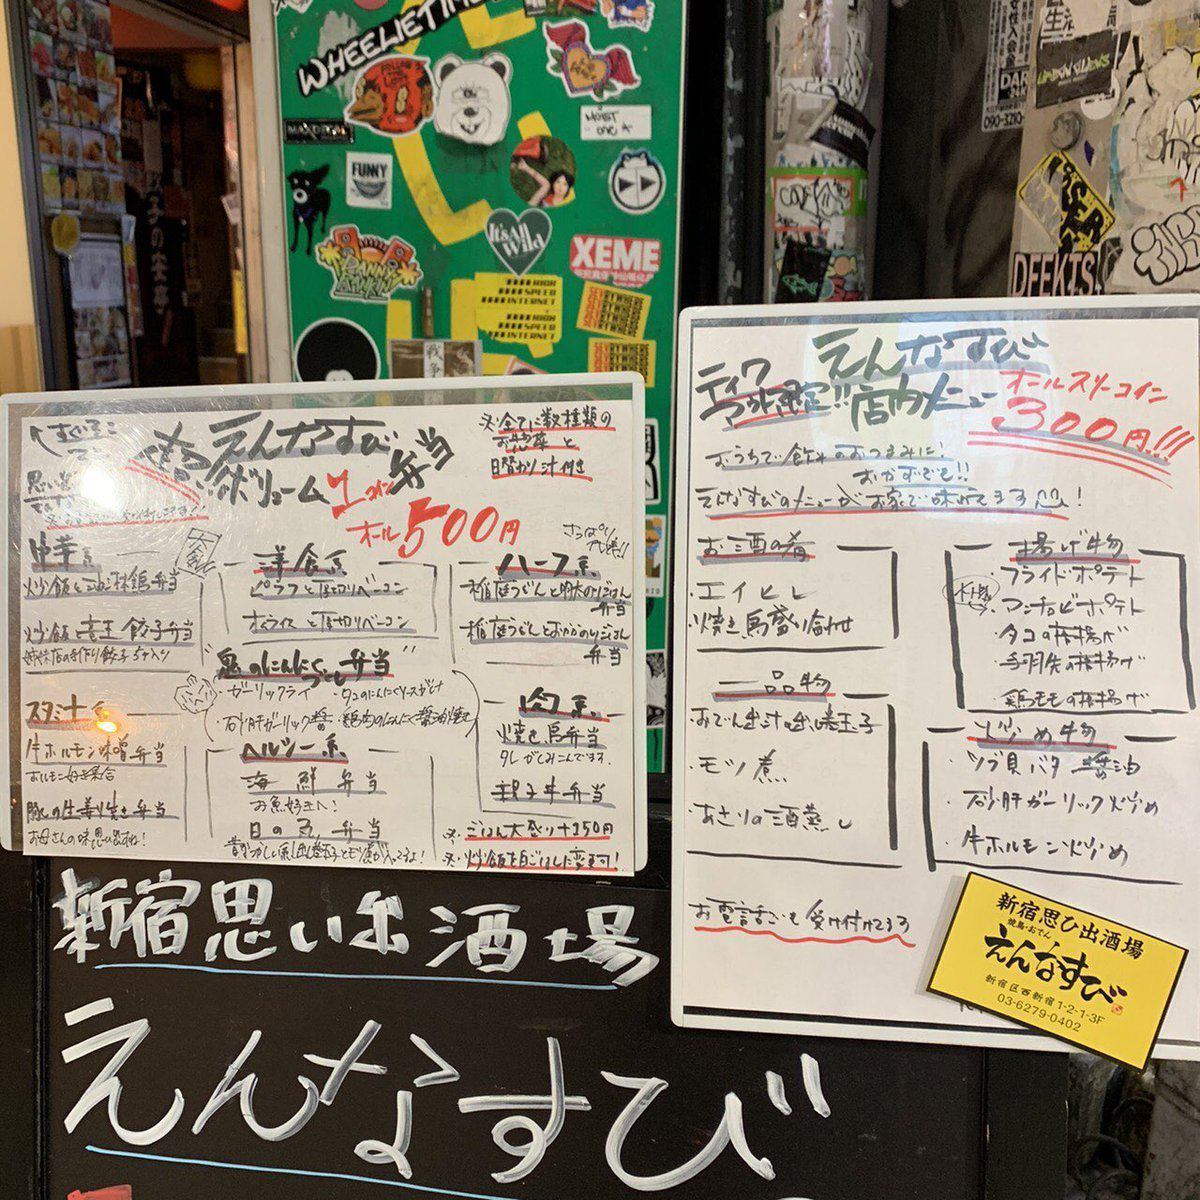 WHEELIETIME
FUNNY
MOIST
ONE
It's All
Wild
XEME
HIGH
SPEED
INTERNET
HIGH
SPEED
INTERNET
戦争
DEEKTS
090-3210
えんなすび
弁当
ボリューム1コイン
オール500円
※全てに数種類の
お惣菜と
日替わり汁付き
中華系
炒飯と
弁当
炒飯と竜王餃子弁当
姉妹店の手作り餃子5ヶ入り
洋食系
ピラフと厚切りベーコン
オムライスと厚切りベーコン
さっぱり
ハーフ系
稲庭うどんと明太のりごはん
弁当
稲庭うどんとおかかのりごはん
弁当
鬼のにんにくづくし弁当
・ガーリックライス
・タコのにんにくソースがけ
・砂肝ガーリック醤
・鶏肉のにんにく醤油焼き
スタミナ系
牛ホルモン味噌弁当
おホルモン好き集合
豚の生姜焼き弁当
お母さんの味思い出すね!
ヘルシー系
海鮮弁当
お魚好きへ!
日の丸弁当
昔なつかしい
出し巻玉子とモツ煮が入ってるよ!
肉系
焼き鳥弁当
タレがしみこんでます。
親子丼弁当
※ごはん大盛り+150円
※炒飯を白ごはんに変更可!
えんなすび
テイクアウト限定!!店内メニュー
オールスリーコイン
300円!!!
おうちで飲みのおつまみに!
おかずでも!!
えんなすびのメニューがお家で味わえます!
お酒の肴
・エイヒレ
・焼き鳥盛り合わせ
一品物
おでん出汁の出し巻玉子
・モツ煮
・あさりの酒蒸し
揚げ物
・フライドポテト
・アンチョビーポテト
・タコの唐揚げ
・手羽先の唐揚げ
・鶏モモの唐揚げ
炒め物
・ツブ貝バター醤油
・砂肝ガーリック炒め
・牛ホルモン炒め
お電話でも受け付けてます
新宿思ひ出酒場
焼鳥・おでん
えんなすび
新宿区西新宿1-2-1-3F
03-6279-0402
新宿思い出酒場
えんなすび